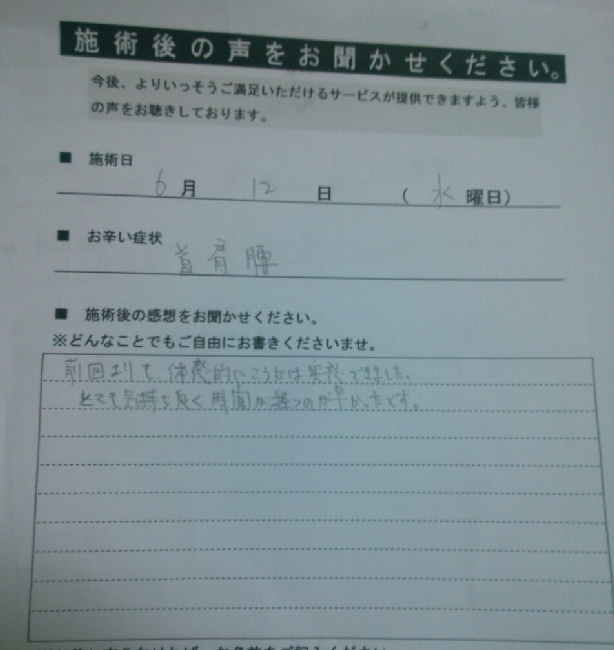 施術後の声をお聞かせください。
今後、よりいっそうご満足いただけるサービスが提供できますよう、皆様
の声をお聴きしております。
■ 施術日
6月 12日 (水曜日)
■ お辛い症状
首 肩 腰
■ 施術後の感想をお聞かせください。
※どんなことでもご自由にお書きくださいませ。
前回よりも 体感的にこうかは実感できました。
とても気持ち良く時間が経つのが早かったです。